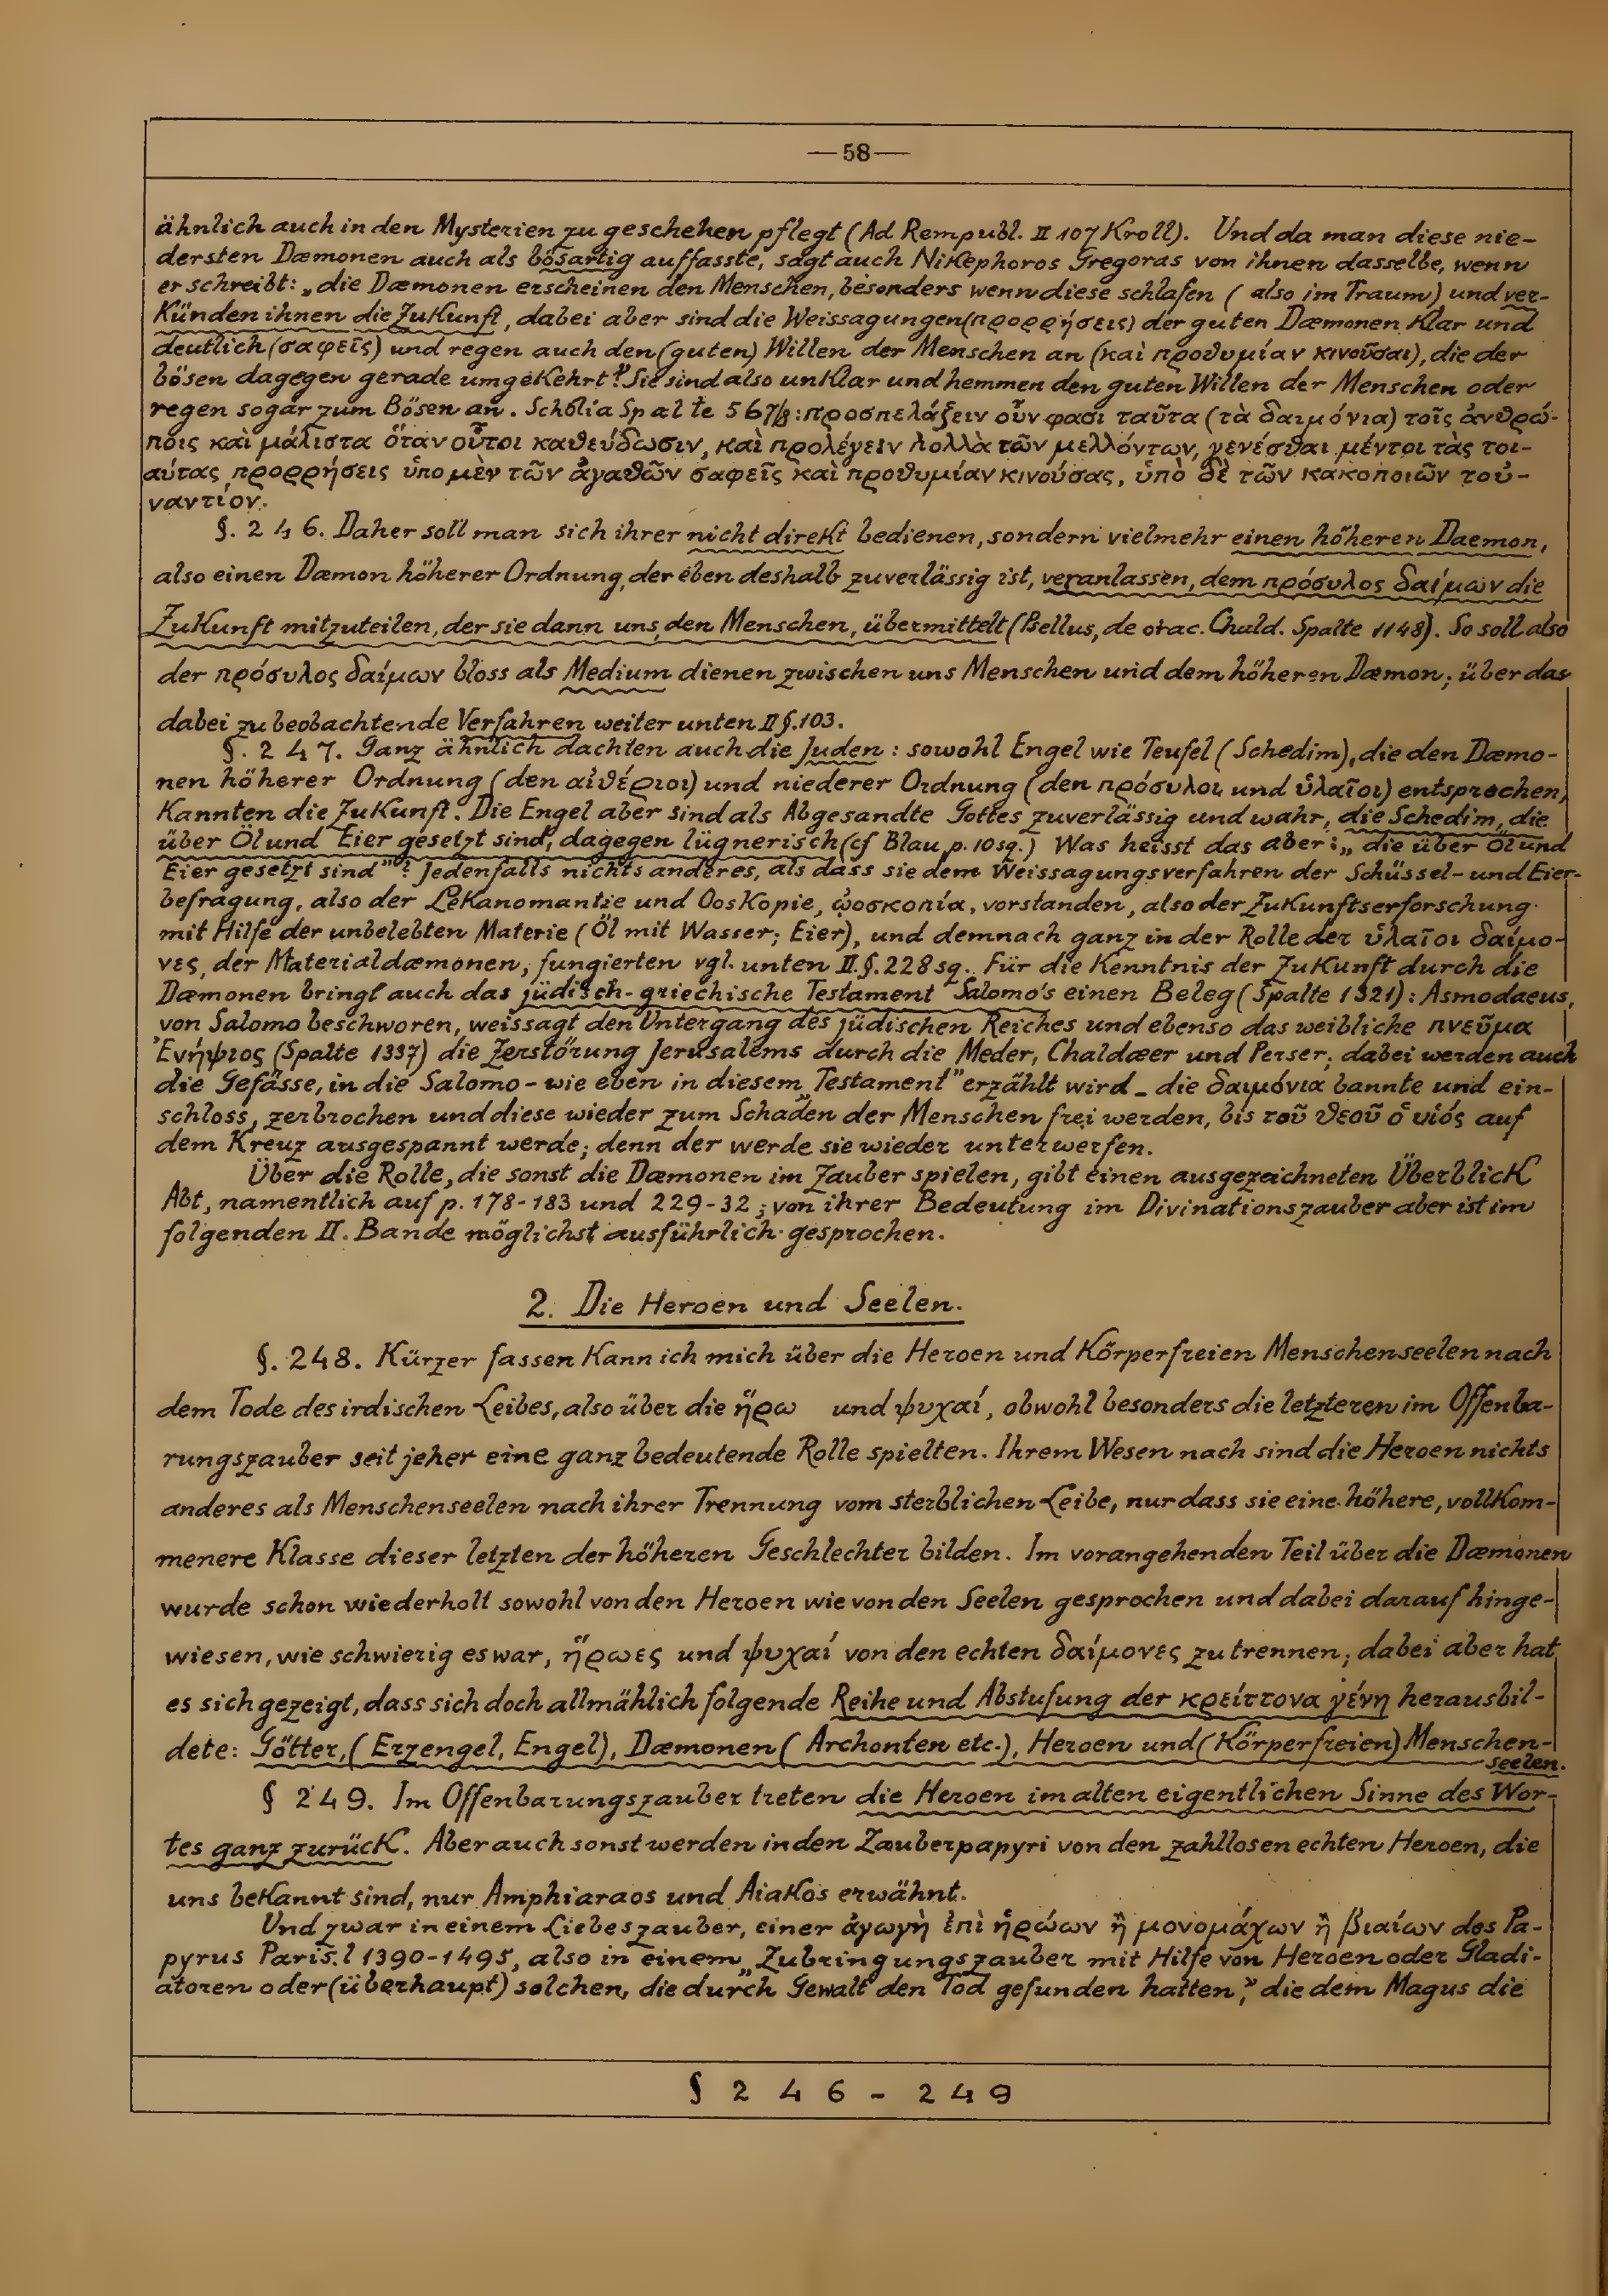 —58—
ähnlich auch in den Mysterien zu geschehen pflegt (Ad Rempubl. II 107 Kroll). Und da man diese nie-
dersten Dæmonen auch als bösartig auffasste, sagt auch Nikephoros Gregoras von ihnen dasselbe, wenn
er schreibt: „die Dæmonen erscheinen den Menschen, besonders wenn diese schlafen (also im Traum) und ver-
künden ihnen die Zukunft, dabei aber sind die Weissagungen (προρρήσεις) der guten Dæmonen klar und
deutlich (σαφεῖς) und regen auch den (guten) Willen der Menschen an (καὶ προθυμίαν κινοῦσαι), die der
bösen dagegen gerade umgekehrt". Sie sind also unklar und hemmen den guten Willen der Menschen oder
regen sogar zum Bösen an. Scholia Spalte 567/8: προσπελάξειν οὖν φασι ταῦτα (τὰ δαιμόνια) τοῖς ἀνθρώ-
ποις καὶ μάλιστα ὅταν οὗτοι καθεύδωσιν, καὶ προλέγειν πολλὰ τῶν μελλόντων, γενέσθαι μέντοι τὰς τοι-
αύτας προρρήσεις ὑπο μὲν τῶν ἀγαθῶν σαφεῖς καὶ προθυμίαν κινούσας, ὑπὸ δὲ τῶν κακοποιῶν τοὐ-
ναντίον.
§. 246. Daher soll man sich ihrer nicht direkt bedienen, sondern vielmehr einen höheren Daemon,
also einen Dæmon höherer Ordnung, der eben deshalb zuverlässig ist, veranlassen, dem πρόσυλος δαίμων die
Zukunft mitzuteilen, der sie dann uns, den Menschen, übermittelt (Psellus, de orac. Chald. Spalte 1148). So soll also
der πρόσυλος δαίμων bloss als Medium dienen zwischen uns Menschen und dem höheren Dæmon; über das
dabei zu beobachtende Verfahren weiter unten II §. 103.
§. 247. Ganz ähnlich dachten auch die Juden: sowohl Engel wie Teufel (Schedim), die den Dæmo-
nen höherer Ordnung (den αἰθέριοι) und niederer Ordnung (den πρόσυλοι und ὑλαῖοι) entsprechen,
kannten die Zukunft. Die Engel aber sind als Abgesandte Gottes zuverlässig und wahr, die Schedim, „die
über Öl und Eier gesetzt sind, dagegen lügnerisch (cf Blau p. 10 sq.) Was heisst das aber: „die über Öl und
Eier gesetzt sind"? Jedenfalls nichts anderes, als dass sie dem Weissagungsverfahren der Schüssel- und Eier-
befragung, also der Lekanomantie und Ooskopie, ᾠοσκοπία, vorstanden, also der Zukunftserforschung
mit Hilfe der unbelebten Materie (Öl mit Wasser; Eier), und demnach ganz in der Rolle der ὑλαῖοι δαίμο-
νες, der Materialdæmonen, fungierten vgl. unten II. §. 228 sq. Für die Kenntnis der Zukunft durch die
Dæmonen bringt auch das jüdisch-griechische Testament Salomo's einen Beleg (Spalte 1321): Asmodaeus,
von Salomo beschworen, weissagt den Untergang des jüdischen Reiches und ebenso das weibliche πνεῦμα
Ἐνήψιος (Spalte 1337) die Zerstörung Jerusalems durch die Meder, Chaldæer und Perser; dabei werden auch
die Gefässe, in die Salomo - wie eben in diesem „Testament" erzählt wird - die δαιμόνια bannte und ein-
schloss, zerbrochen und diese wieder zum Schaden der Menschen frei werden, bis τοῦ θεοῦ ὁ υἱός auf
dem Kreuz ausgespannt werde; denn der werde sie wieder unterwerfen.
Über die Rolle, die sonst die Dæmonen im Zauber spielen, gibt einen ausgezeichneten Überblick
Abt, namentlich auf p. 178-183 und 229-32; von ihrer Bedeutung im Divinationszauber aber ist im
folgenden II. Bande möglichst ausführlich gesprochen.
2. Die Heroen und Seelen.
§. 248. Kürzer fassen kann ich mich über die Heroen und körperfreien Menschenseelen nach
dem Tode des irdischen Leibes, also über die ἥρω und ψυχαί, obwohl besonders die letzteren im Offenba-
rungszauber seit jeher eine ganz bedeutende Rolle spielten. Ihrem Wesen nach sind die Heroen nichts
anderes als Menschenseelen nach ihrer Trennung vom sterblichen Leibe, nur dass sie eine höhere, vollkom-
menere Klasse dieser letzten der höheren Geschlechter bilden. Im vorangehenden Teil über die Dæmonen
wurde schon wiederholt sowohl von den Heroen wie von den Seelen gesprochen und dabei darauf hinge-
wiesen, wie schwierig es war, ἥρωες und ψυχαί von den echten δαίμονες zu trennen; dabei aber hat
es sich gezeigt, dass sich doch allmählich folgende Reihe und Abstufung der κρείττονα γένη herausbil-
dete: Götter, (Erzengel, Engel), Dæmonen (Archonten etc.), Heroen und (körperfreien) Menschen-
seelen.
§ 249. Im Offenbarungszauber treten die Heroen im alten eigentlichen Sinne des Wor-
tes ganz zurück. Aber auch sonst werden in den Zauberpapyri von den zahllosen echten Heroen, die
uns bekannt sind, nur Amphiaraos und Aiakos erwähnt.
Und zwar in einem Liebeszauber, einer ἀγωγὴ ἐπὶ ἡρώων ἢ μονομάχων ἢ βιαίων des Pa-
pyrus Paris. l 1390-1495, also in einem „Zubringungszauber mit Hilfe von Heroen oder Gladi-
atoren oder (überhaupt) solchen, die durch Gewalt den Tod gefunden hatten," die dem Magus die
§ 246-249